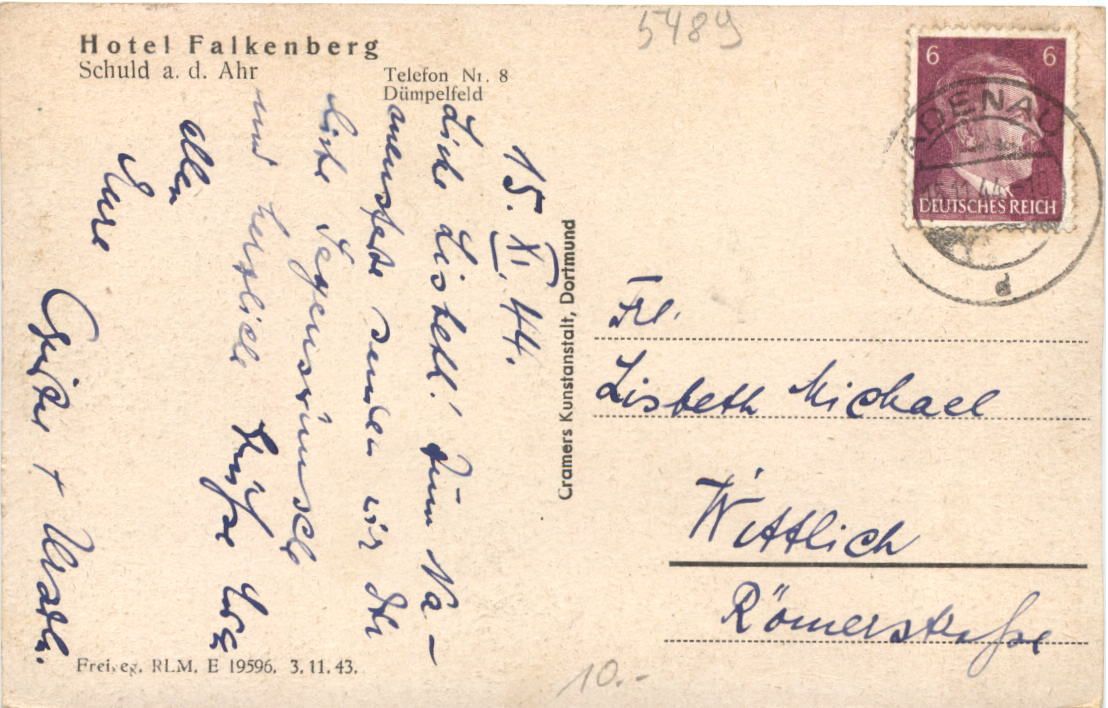 5489
Hotel Falkenberg
Schuld a. d. Ahr
Telefon Nr. 8
Dümpelfeld
6 6
DEUTSCHES REICH
ADENAU
d
15. XI. 44.
Liebe Lisbeth! Zum Na-
menstage senden wir Dir
liebe Segenswünsche
und herzliche Grüße Euch
allen
Eure
+
Cramers Kunstanstalt, Dortmund
Frl.
Lisbeth Michael
Wittlich
Römerstraße
Freigeg. RLM. E 19596. 3.11.43.
10.-